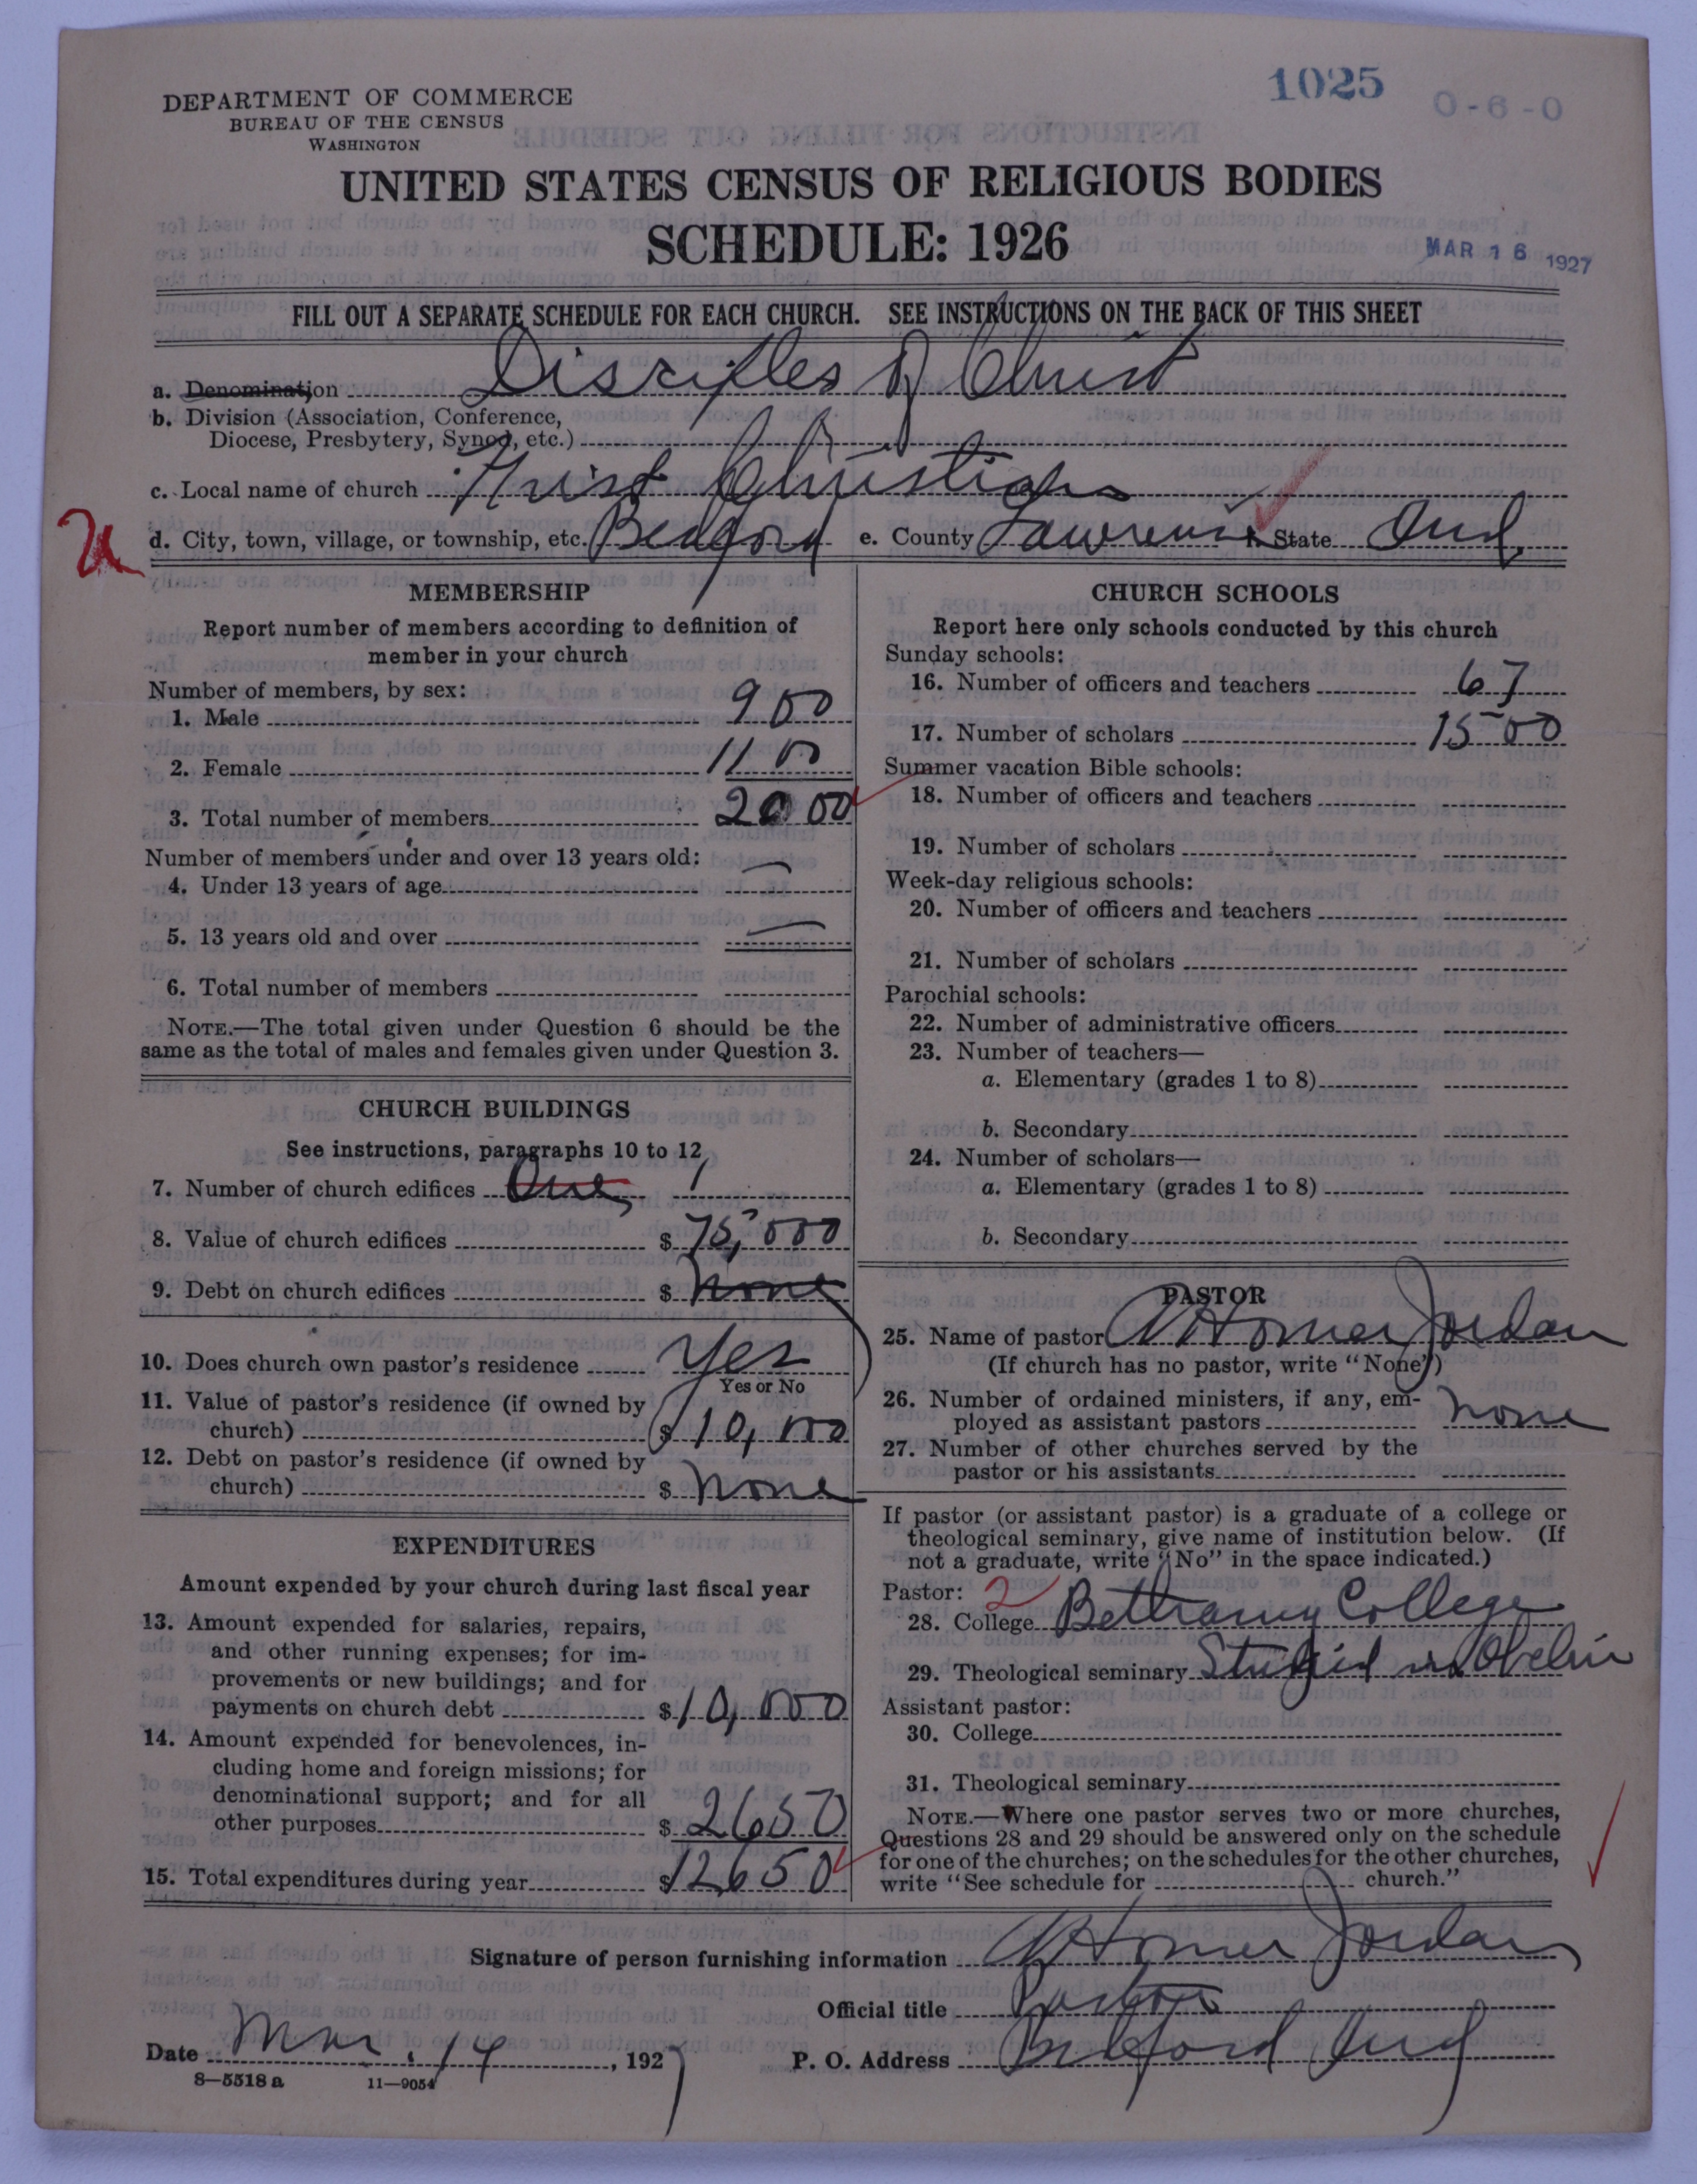 1025
0-6-0
DEPARTMENT OF COMMERCE
BUREAU OF THE CENSUS
WASHINGTON
UNITED STATES CENSUS OF RELIGIOUS BODIES
SCHEDULE: 1926
MAR 16 1927
FILL OUT A SEPARATE SCHEDULE FOR EACH CHURCH. SEE INSTRUCTIONS ON THE BACK OF THIS SHEET
a. Denomination Disciples of Christ
b. Division (Association, Conference,
Diocese, Presbytery, Synod, etc.)
c. Local name of church First Christian
d. City, town, village, or township, etc. Bedford e. County Lawrence f. State Ind.
MEMBERSHIP
Report number of members according to definition of
member in your church
Number of members, by sex:
1. Male 900
2. Female 1100
3. Total number of members 2000
Number of members under and over 13 years old:
4. Under 13 years of age —
5. 13 years old and over —
6. Total number of members
NOTE.—The total given under Question 6 should be the
same as the total of males and females given under Question 3.
CHURCH BUILDINGS
See instructions, paragraphs 10 to 12
7. Number of church edifices One 1
8. Value of church edifices $ 75,000
9. Debt on church edifices $ none
10. Does church own pastor's residence Yes
Yes or No
11. Value of pastor's residence (if owned by
church) $ 10,000
12. Debt on pastor's residence (if owned by
church) $ none
EXPENDITURES
Amount expended by your church during last fiscal year
13. Amount expended for salaries, repairs,
and other running expenses; for im-
provements or new buildings; and for
payments on church debt $ 10,000
14. Amount expended for benevolences, in-
cluding home and foreign missions; for
denominational support; and for all
other purposes $ 2650
15. Total expenditures during year $ 12,650
CHURCH SCHOOLS
Report here only schools conducted by this church
Sunday schools:
16. Number of officers and teachers 67
17. Number of scholars 1500
Summer vacation Bible schools:
18. Number of officers and teachers
19. Number of scholars
Week-day religious schools:
20. Number of officers and teachers
21. Number of scholars
Parochial schools:
22. Number of administrative officers
23. Number of teachers—
a. Elementary (grades 1 to 8)
b. Secondary
24. Number of scholars—
a. Elementary (grades 1 to 8)
b. Secondary
PASTOR
25. Name of pastor Homer Jordan
(If church has no pastor, write "None")
26. Number of ordained ministers, if any, em-
ployed as assistant pastors none
27. Number of other churches served by the
pastor or his assistants
If pastor (or assistant pastor) is a graduate of a college or
theological seminary, give name of institution below. (If
not a graduate, write "No" in the space indicated.)
Pastor: 2
28. College Bethany College
29. Theological seminary Studied in Oberlin
Assistant pastor:
30. College
31. Theological seminary
NOTE.—Where one pastor serves two or more churches,
Questions 28 and 29 should be answered only on the schedule
for one of the churches; on the schedules for the other churches,
write "See schedule for church."
Signature of person furnishing information Homer Jordan
Official title Pastor
Date Mar. 14, 1927 P. O. Address Bedford Ind
8—5518 a 11—9054